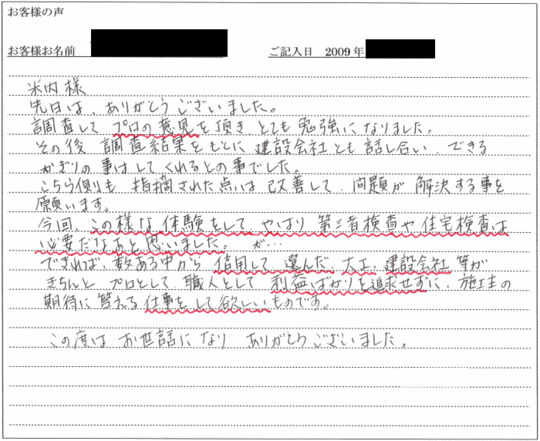 お客様の声
お客様お名前 ご記入日 2009年
米内様
先日は、ありがとうございました。
調査して プロの意見を頂き とても勉強になりました。
その後 調査結果をもとに 建設会社とも話し合い、できる
かぎりの事はして くれるとの事でした。
こちら側も 指摘された点は 改善して、問題が 解決する事を
願います。
今回、この様な 体験をして やはり 第三者検査や 住宅検査は
必要だなあと思いました。 が…
できれば、数ある中から 信用して 選んだ 大工、建設会社 等が
きちんと プロとして 職人として 利益ばかりを追求せずに、施主の
期待に 答える 仕事を して 欲しいものです。
この度は お世話になり ありがとうございました。